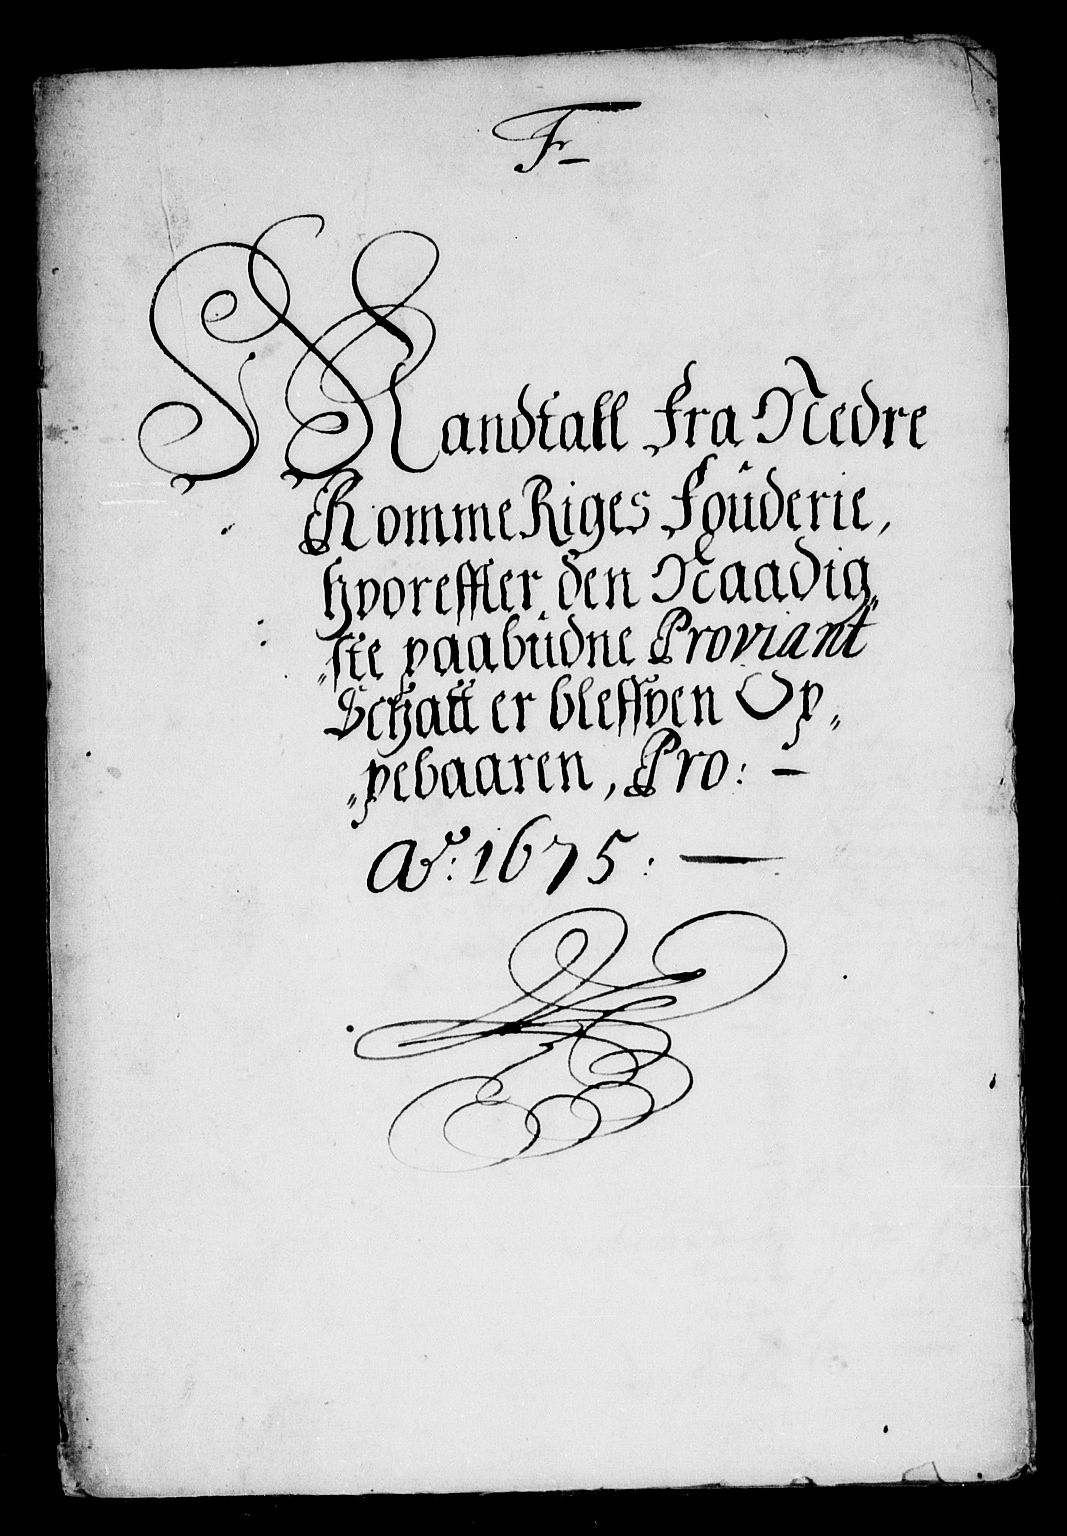 F
Mandtall fra Nedre
Romme Riges foüderie,
hvoreffter den Naadig„
„ste paabüdne Proviant
Schatt er bleffven Op„
„pebaaren, Pro: —
Ao: 1675: —